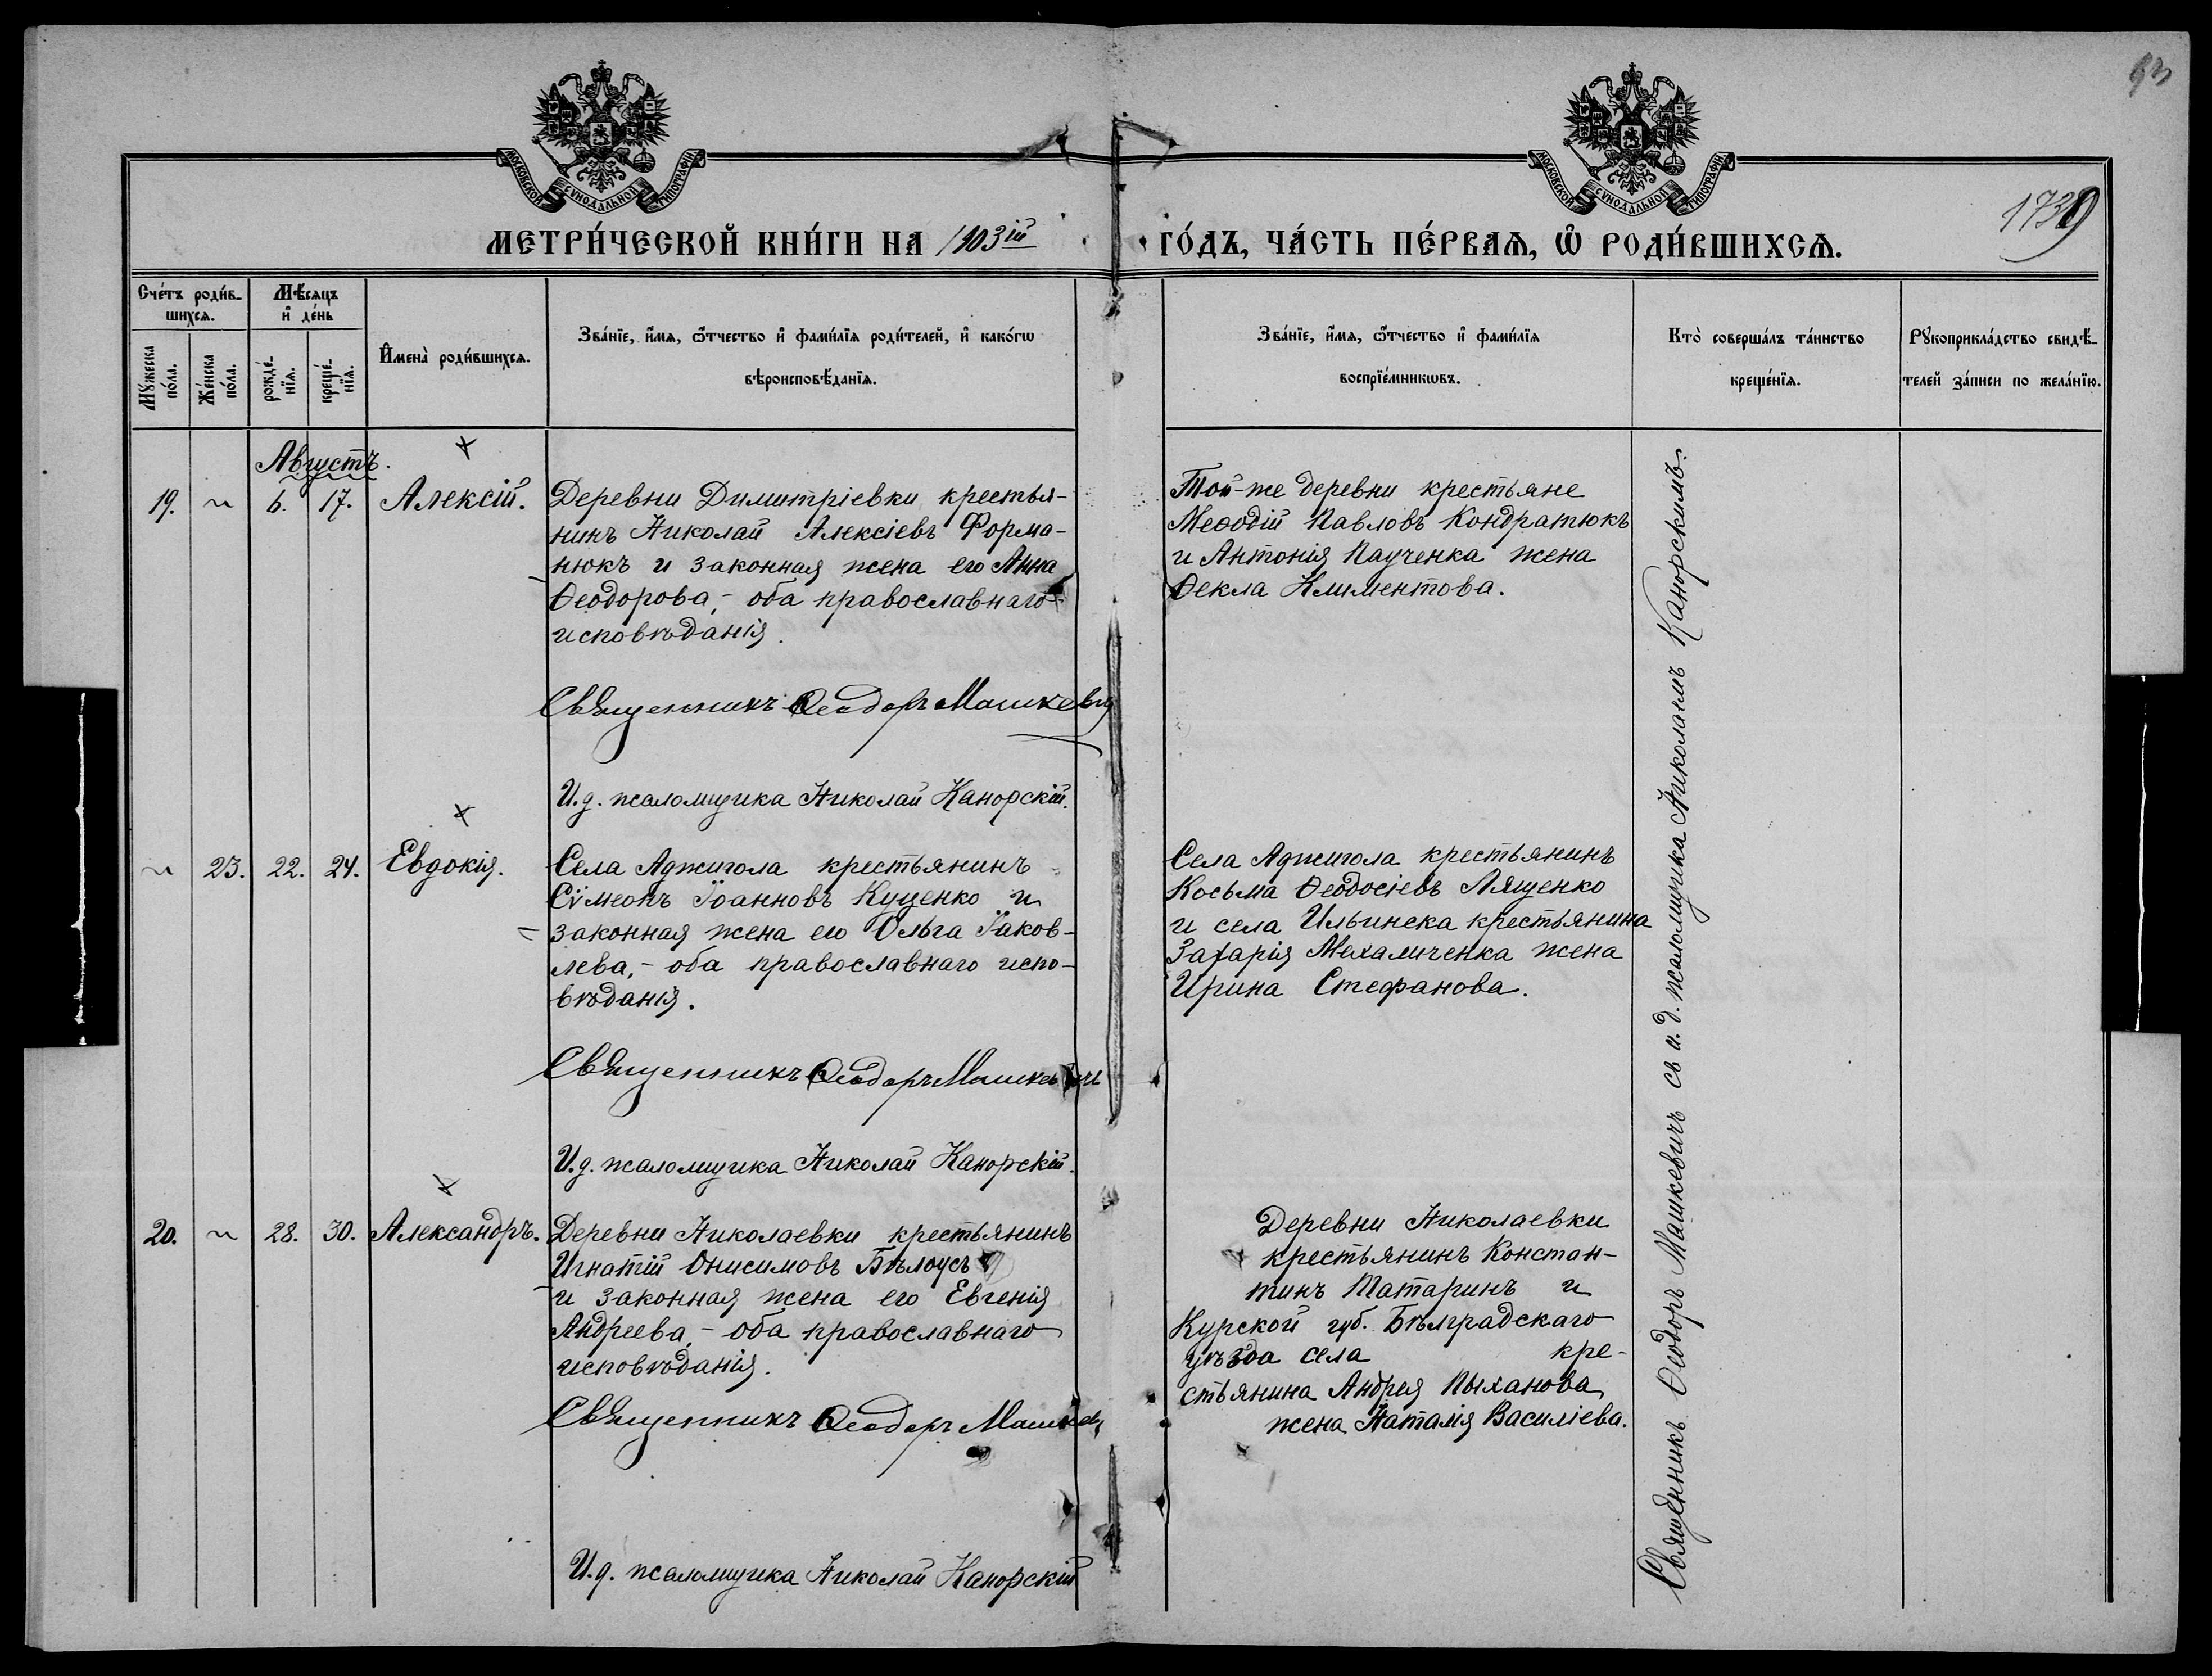 93
МОСКОВСКОЙ СѴНОДАЛЬНОЙ ТИПОГРАФІИ
МОСКОВСКОЙ СѴНОДАЛЬНОЙ ТИПОГРАФІИ
1739
МЕТРИ́ЧЕСКОЙ КНИ́ГИ НА 1903ій ГО́ДЪ, ЧА́СТЬ ПЕ́РВАѦ, Ѽ РОДИ́ВШИХСѦ.
Сче́тъ роди́в-
шихсѧ.
Мѣ́сяцъ
и҆ де́нь
Мꙋ́жеска
по́ла.
Же́нска
по́ла.
рожде́-
нїѧ.
креще́-
нїѧ.
И҆мена̀ роди́вшихсѧ.
Зва́нїе, и҆́мѧ, ѻ҆́тчество и҆ фами́лїѧ роди́телей, и҆ како́гѡ
вѣроисповѣ́данїѧ.
Зва́нїе, и҆́мѧ, ѻ҆́тчество и҆ фами́лїѧ
воспрїе́мникѡвъ.
Кто̀ соверша́лъ та́инство
креще́нїѧ.
Рꙋкоприкла́дство свидѣ́-
телей за́писи по жела́нїю.
Августъ.
19. ~ 6. 17. Алексій.
Деревни Димитріевки крестья-
нинъ Николай Алексіевъ Форма-
нюкъ и законная жена его Анна
Ѳеодорова,- оба православнаго
исповѣданія.
Священникъ Ѳеодоръ Машкевич
И.д. псаломщика Николай Канорскій.
Той-же деревни крестьяне
Меѳодій Павловъ Кондратюкъ
и Антонія Паученка жена
Ѳекла Климентова.
~ 23. 22. 24. Евдокія.
Села Аджигола крестьянинъ
Сѵмеонъ Іоанновъ Куценко и
законная жена его Ольга Іаков-
лева,- оба православнаго испо-
вѣданія.
Священникъ Ѳеодоръ Машкевичъ
И.д. псаломщика Николай Канорскій.
Села Аджигола крестьянинъ
Косьма Ѳеодосіевъ Лященко
и села Ильинска крестьянина
Захарія Мехаличенка жена
Ирина Стефанова.
20. ~ 28. 30. Александръ.
Деревни Николаевки крестьянинъ
Игнатій Онисимовъ Бѣлоусъ
и законная жена его Евгенія
Андреева,- оба православнаго
исповѣданія.
Священникъ Ѳеодоръ Машкев
И.д. псаломщика Николай Канорскій
Деревни Николаевки
крестьянинъ Констан-
тинъ Татаринъ и
Курской губ. Бѣлградскаго
уѣзда села кре-
стьянина Андрея Пыханова
жена Наталія Василіева.
Священникъ Ѳеодоръ Машкевичъ съ и.д. псаломщика Николаемъ Канорскимъ.